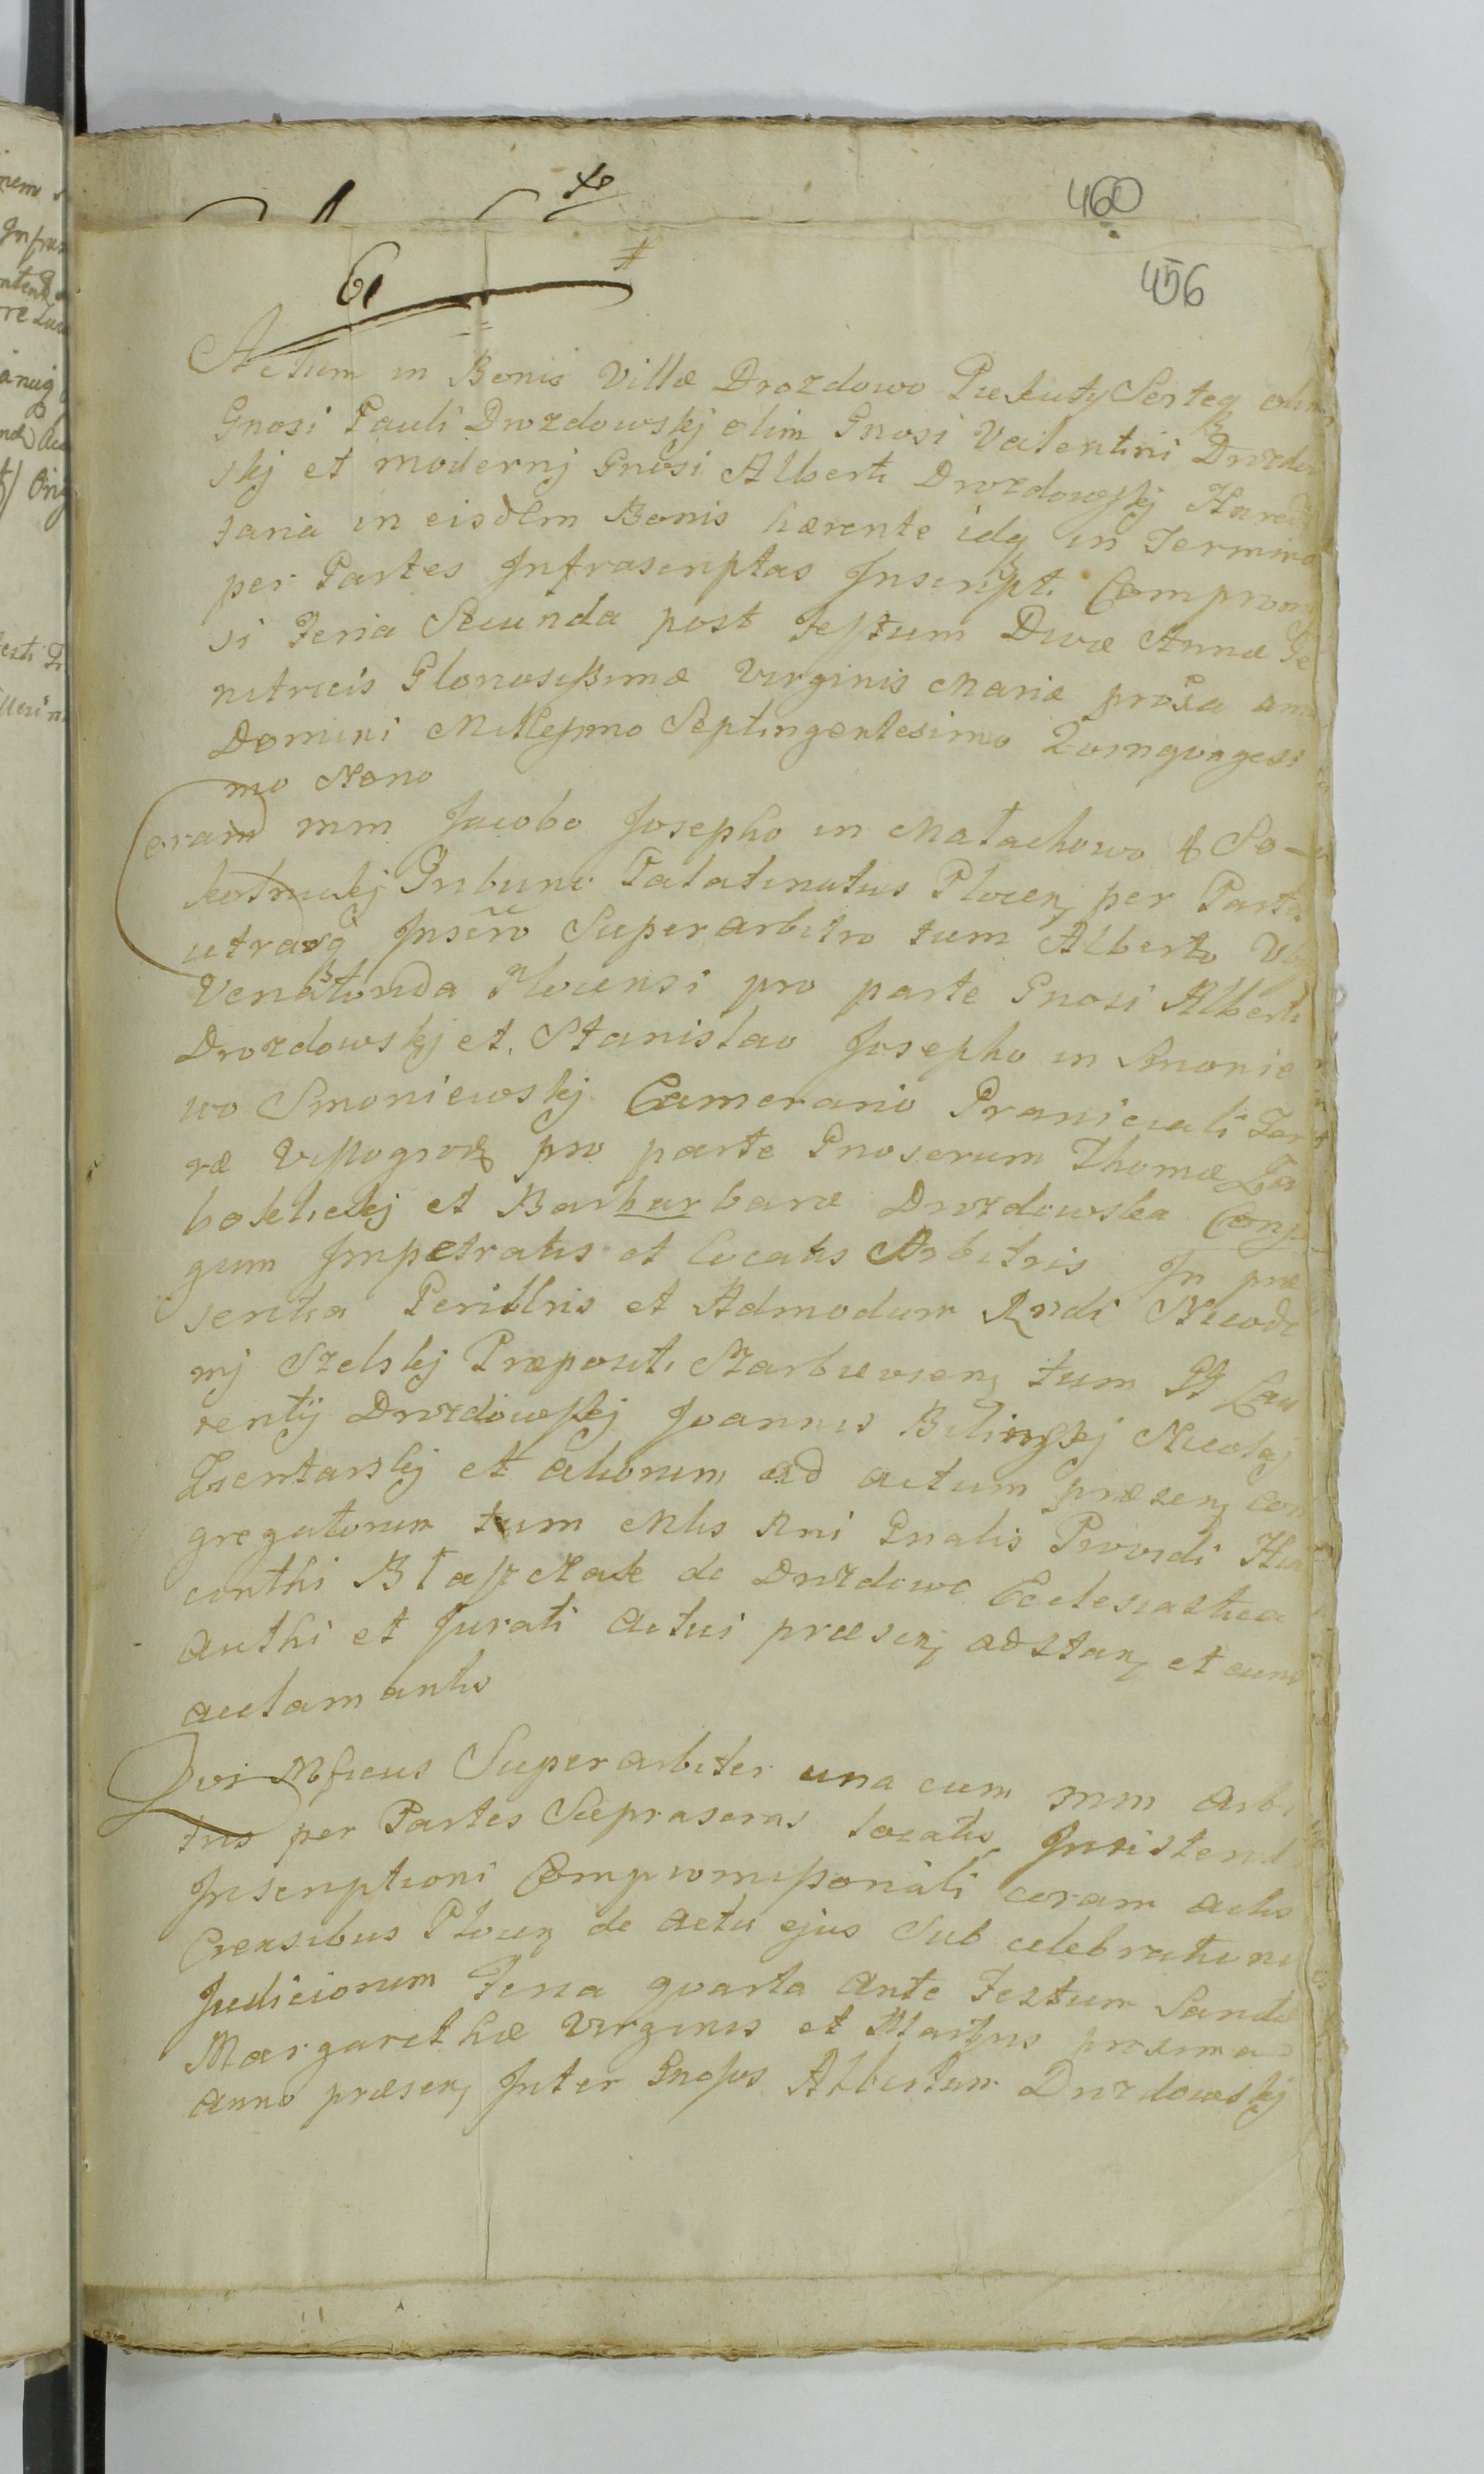 460
456
61
Actum in Bonis Villæ Drozdowo Sorteq olim
Gnosi Pauli Drozdowskj olim Gnosi Valentini Drozdow
skj et modernj Gnosi Alberti Drozdowskj Hæredi
taria in eisdem Bonis hærente idq in Termino
per Partes Infrascriptas Inscript. Compromis
si Feria Secunda post Festum Divæ Annæ Ge
nitricis Gloriosissimæ Virginis Mariæ proxa anno
Domini Millesimo Septingentesimo Quinquagesi
mo Nono
Coram mm Jacobo Josepho in Małachowo &
Tribuno Palatinatus Plocen per Partes
utrasq Superarbitro tum Alberto
Plocensi pro parte Gnosi Alberti
Drozdowskj et Stanislao Josepho in Smonie
wo Smoniewskj Camerario Graniciali Ter
ræ Wyssogrod pro parte Gnosorum Thomæ
et Bar bar baræ Drozdowska Conju
gum Impetratis et locatis Arbitris In præ
sentia Perillris et Admodum Rndi Nicode
mj Szelskj Præpositi tum GG Lau
rentij Drozdowskj Joannis Bilinskj Nicolaj
et aliorum ad actum præsen con
gregatorum tum Mlis Rni Gnalis Providi Hia
cinthi Błaszczak de Drozdowo Ecclesiastica
authi et Jurati actui præsen adstan et eund
aclamantis
Qui Mficus Superarbiter una cum mm arbi
tris per Partes Suprascras locatis Insistendo
Inscriptioni Compromissoriali coram actis
Crensibus Plocen de actu ejus Sub celebratione
Judiciorum Feria quarta ante Festum Sanctæ
Margarethæ Virginis et Martyris proxima
anno præsen Inter Gnosos Albertum Drozdowskj